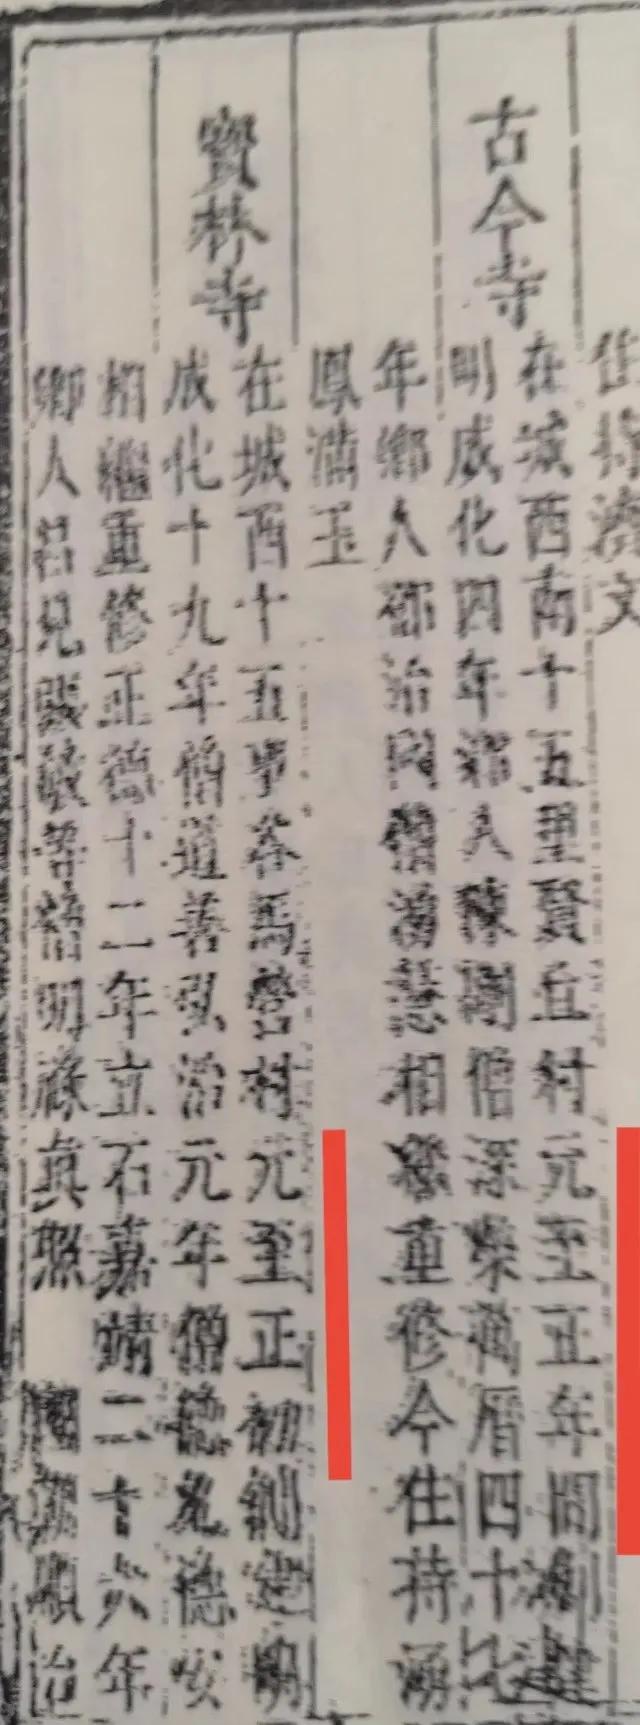 住持濟文
古今寺
在城西南十五里賢丘村元至正年間創建
明成化四年鄉人陳剛僧深榮萬曆四十七
年鄉人邵治同僧湧慧相繼重修今住持涵
鳳滿玉
寶林寺
在城西十五里春馬營村元至正初創建明
成化十九年僧道善弘治元年僧德 德
相繼重修正德十二年立石嘉靖二十六年
鄉人呂見 明 真熙 國朝順治